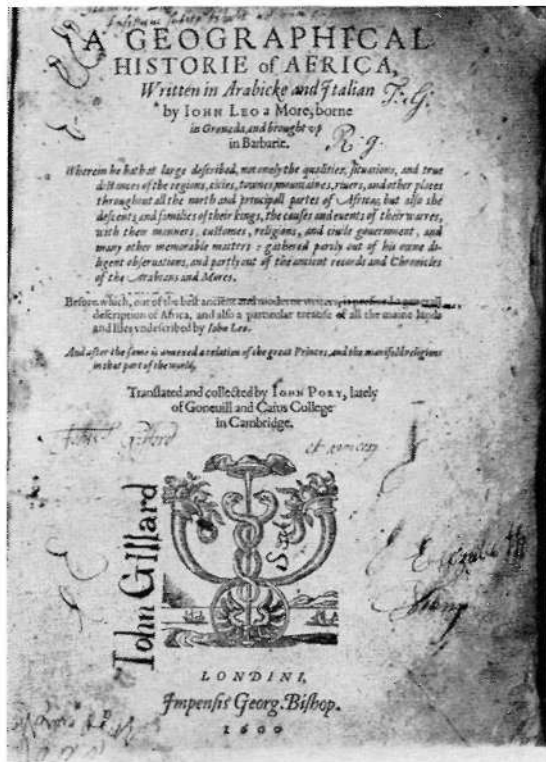 A GEOGRAPHICAL
HISTORIE of AFRICA,
Written in Arabicke and Italian
by IOHN LEO a More, borne
in Granada, and brought vp
in Barbarie.
T: G:
R. g.
Wherein he hath at large described, not onely the qualities, situations, and true
distances of the regions, cities, townes, mountaines, riuers, and other places
throughout all the north and principall partes of Africa; but also the
descents and families of their kings, the causes and euents of their warres,
with their manners, customes, religions, and ciuile gouernment, and
many other memorable matters: gathered partly out of his owne di-
ligent obseruations, and partly out of the ancient records and Chronicles
of the Arabians and Mores.
Before which, out of the best ancient and moderne writers, is prefixed a generall
description of Africa, and also a particular treatise of all the maine lands
and Isles vndescribed by Iohn Leo.
And after the same is annexed a relation of the great Princes, and the manifold religions
in that part of the world,
Translated and collected by IOHN PORY, lately
of Goneuill and Caius College
in Cambridge.
Iohn Gilllard
LONDINI,
Impensis Georg. Bishop.
1600